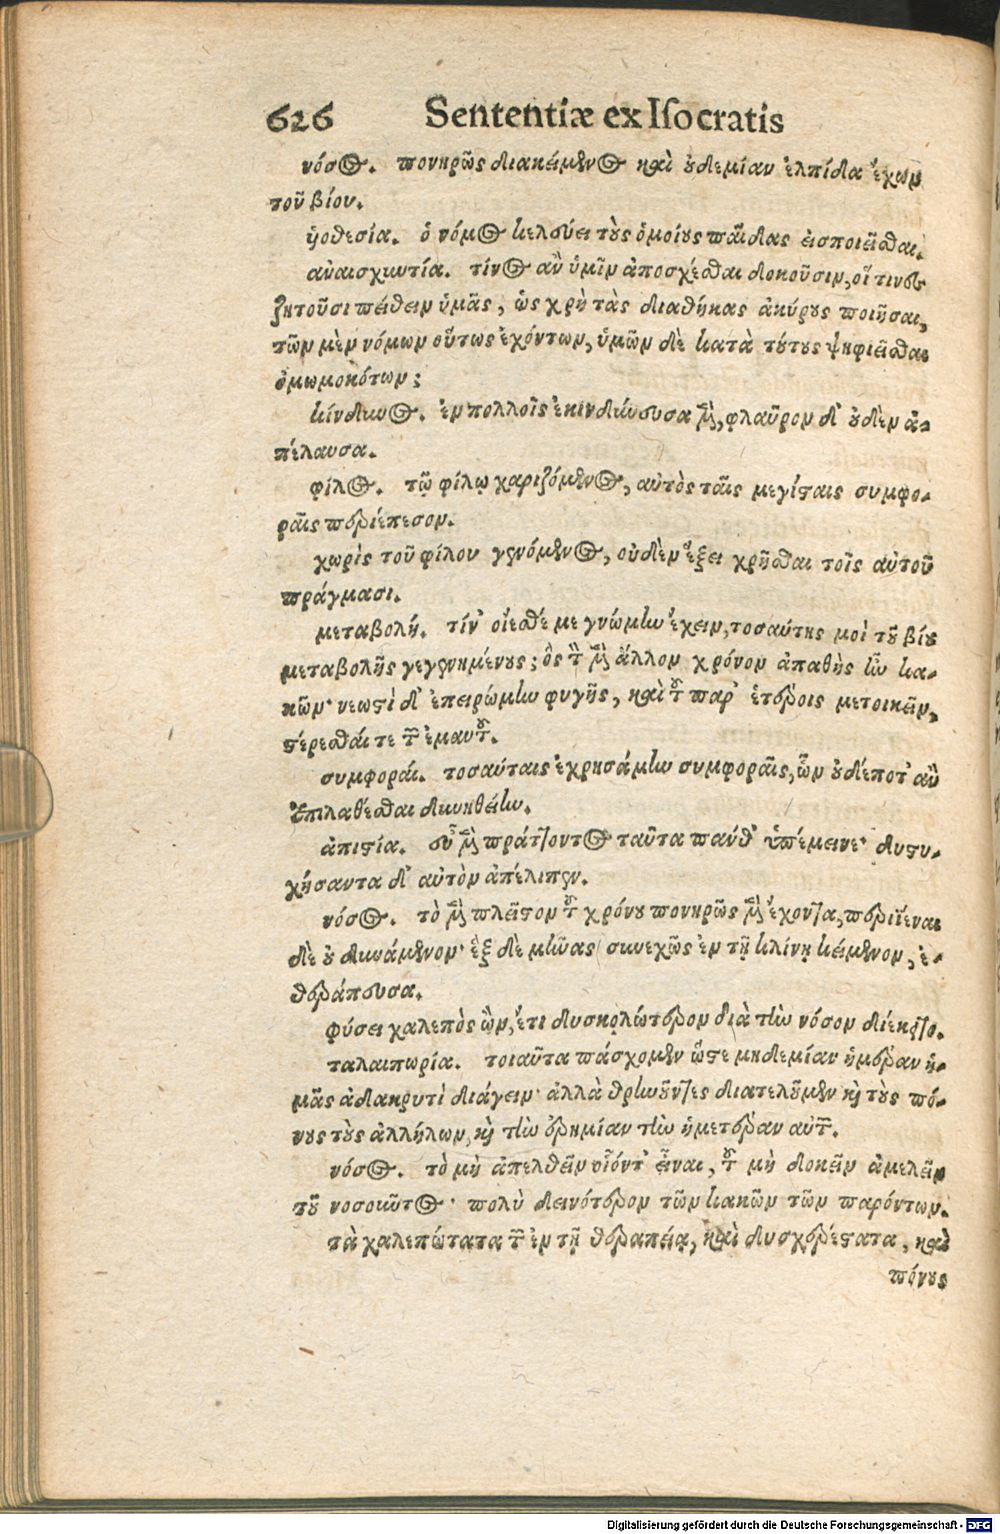 626 Sententiæ ex Iſocratis
νόσος. πονηρῶς διακείμενος καὶ οὐδεμίαν ἐλπίδα ἔχων
τοῦ βίου.
ὑοθεσία. ὁ νόμος κελεύει τοὺς ὁμοίους παῖδας εἰσποιεῖσθαι.
ἀναισχυντία. τίνος ἂν ὑμῖν ἀποσχέσθαι δοκοῦσιν, οἵ τινες
ζητοῦσι πείθειν ὑμᾶς, ὡς χρὴ τὰς διαθήκας ἀκύρους ποιῆσαι,
τῶν μὲν νόμων οὕτως ἐχόντων, ὑμῶν δὲ κατὰ τούτους ψηφιεῖσθαι
ὀμωμοκότων;
κίνδυνος. ἐν πολλοῖς ἐκινδύνευσα μὲν, φλαῦρον δ' οὐδὲν ἀ-
πέλαυσα.
φίλος. τῷ φίλῳ χαριζόμενος, αὐτὸς ταῖς μεγίσταις συμφο-
ραῖς περιέπεσον.
χωρὶς τοῦ φίλου γενόμενος, οὐδὲν ἕξει χρῆσθαι τοῖς αὑτοῦ
πράγμασι.
μεταβολή. τίν' οἴεσθέ με γνώμην ἔχειν, τοσαύτης μοὶ τοῦ βίου
μεταβολῆς γεγενημένης; ὃς τὸν μὲν ἄλλον χρόνον ἀπαθὴς ἦν κα-
κῶν· νεωστὶ δ' ἐπειρώμην φυγῆς, καὶ τοῦ παρ' ἑτέροις μετοικεῖν,
στέρεσθαί τε τῶν ἐμαυτοῦ.
συμφοραί. τοσαύταις ἐχρησάμην συμφοραῖς, ὧν οὐδέποτ' ἂν
ἐπιλαθέσθαι δυνηθείην.
ἀπιστία. εὖ μὲν πράττοντος ταῦτα πάνθ' ὑπέμεινε· δυστυ-
χήσαντα δ' αὐτὸν ἀπέλιπεν.
νόσος. τὸ μὲν πλεῖστον τοῦ χρόνου πονηρῶς μὲν ἔχοντα, περιϊέναι
δὲ οὐ δυνάμενον· ἓξ δὲ μῆνας συνεχῶς ἐν τῇ κλίνῃ κείμενον, ἐ-
θεράπευσα.
φύσει χαλεπὸς ὢν, ἔτι δυσκολώτερον διὰ τὴν νόσον διέκειτο.
ταλαιπωρία. τοιαῦτα πάσχομεν ὥστε μηδεμίαν ἡμέραν ἡ-
μᾶς ἀδακρυτὶ διάγειν· ἀλλὰ θρηνοῦντες διατελοῦμεν καὶ τοὺς πό-
νους τοὺς ἀλλήλων, καὶ τὴν ἐρημίαν τὴν ἡμετέραν αὐτῶν.
νόσος. τὸ μὴ ἀπελθεῖν οἷόντ' εἶναι, τοῦ μὴ δοκεῖν ἀμελεῖν
τοῦ νοσοῦντος· πολὺ δεινότερον τῶν κακῶν τῶν παρόντων.
τὰ χαλεπώτατα τῶν ἐν τῇ θεραπείᾳ, καὶ δυσχερέστατα, καὶ
πόνους
Digitalisierung gefördert durch die Deutsche Forschungsgemeinschaft - DFG